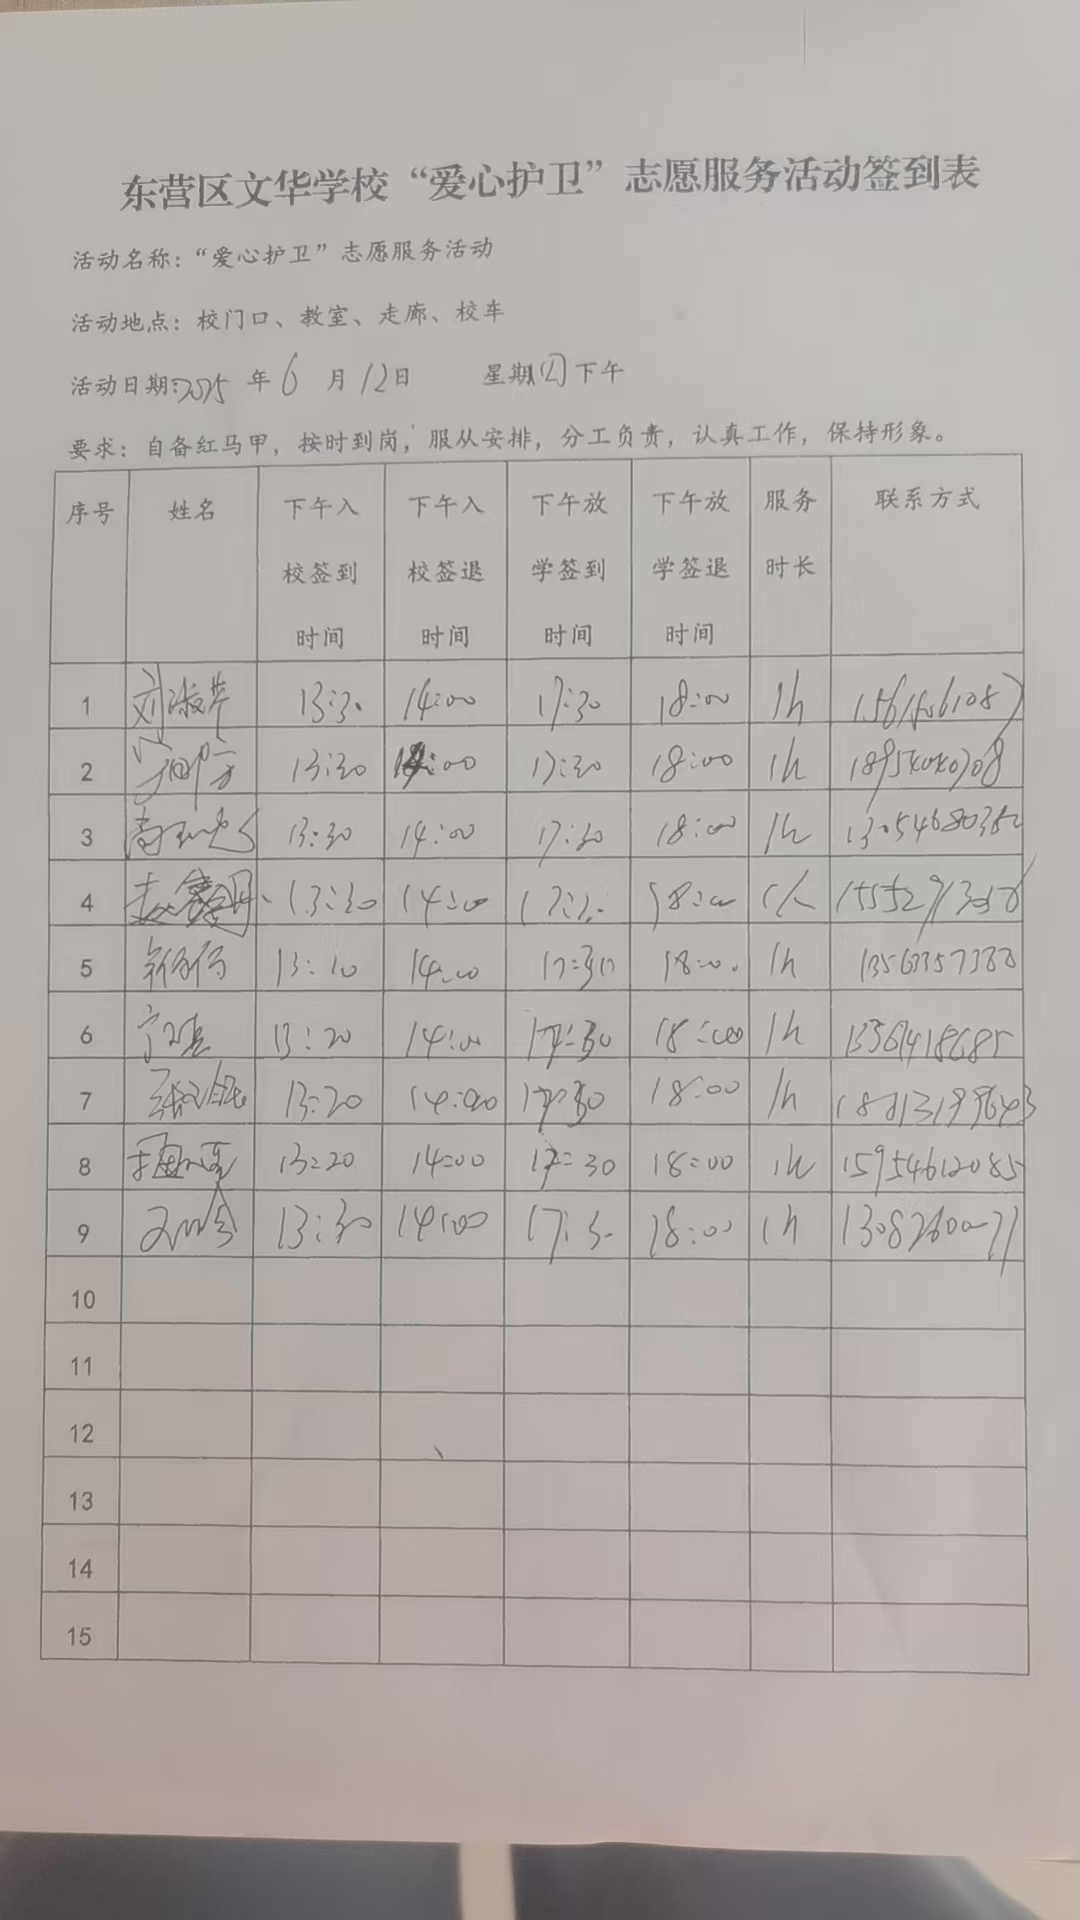 东营区文华学校“爱心护卫”志愿服务活动签到表
活动名称：“爱心护卫”志愿服务活动
活动地点：校门口、教室、走廊、校车
活动日期：2025年6月12日 星期四下午
要求：自备红马甲，按时到岗，服从安排，分工负责，认真工作，保持形象。
序号 姓名 下午入校签到时间 下午入校签退时间 下午放学签到时间 下午放学签退时间 服务时长 联系方式
1 刘淑芹 13:30 14:00 17:30 18:00 1h
2 13:30 14:00 17:30 18:00 1h
3 13:30 14:00 17:30 18:00 1h 13054680352
4 13:30 14:00 17:30 18:00 1h
5 14:00 17:30 18:00 1h
6 13:20 14:00 17:30 18:00 1h
7 13:20 14:00 17:30 18:00 1h
8 13:20 14:00 17:30 18:00 1h 15954612085
9 13:30 14:00 17:30 18:00 1h
10
11
12
13
14
15